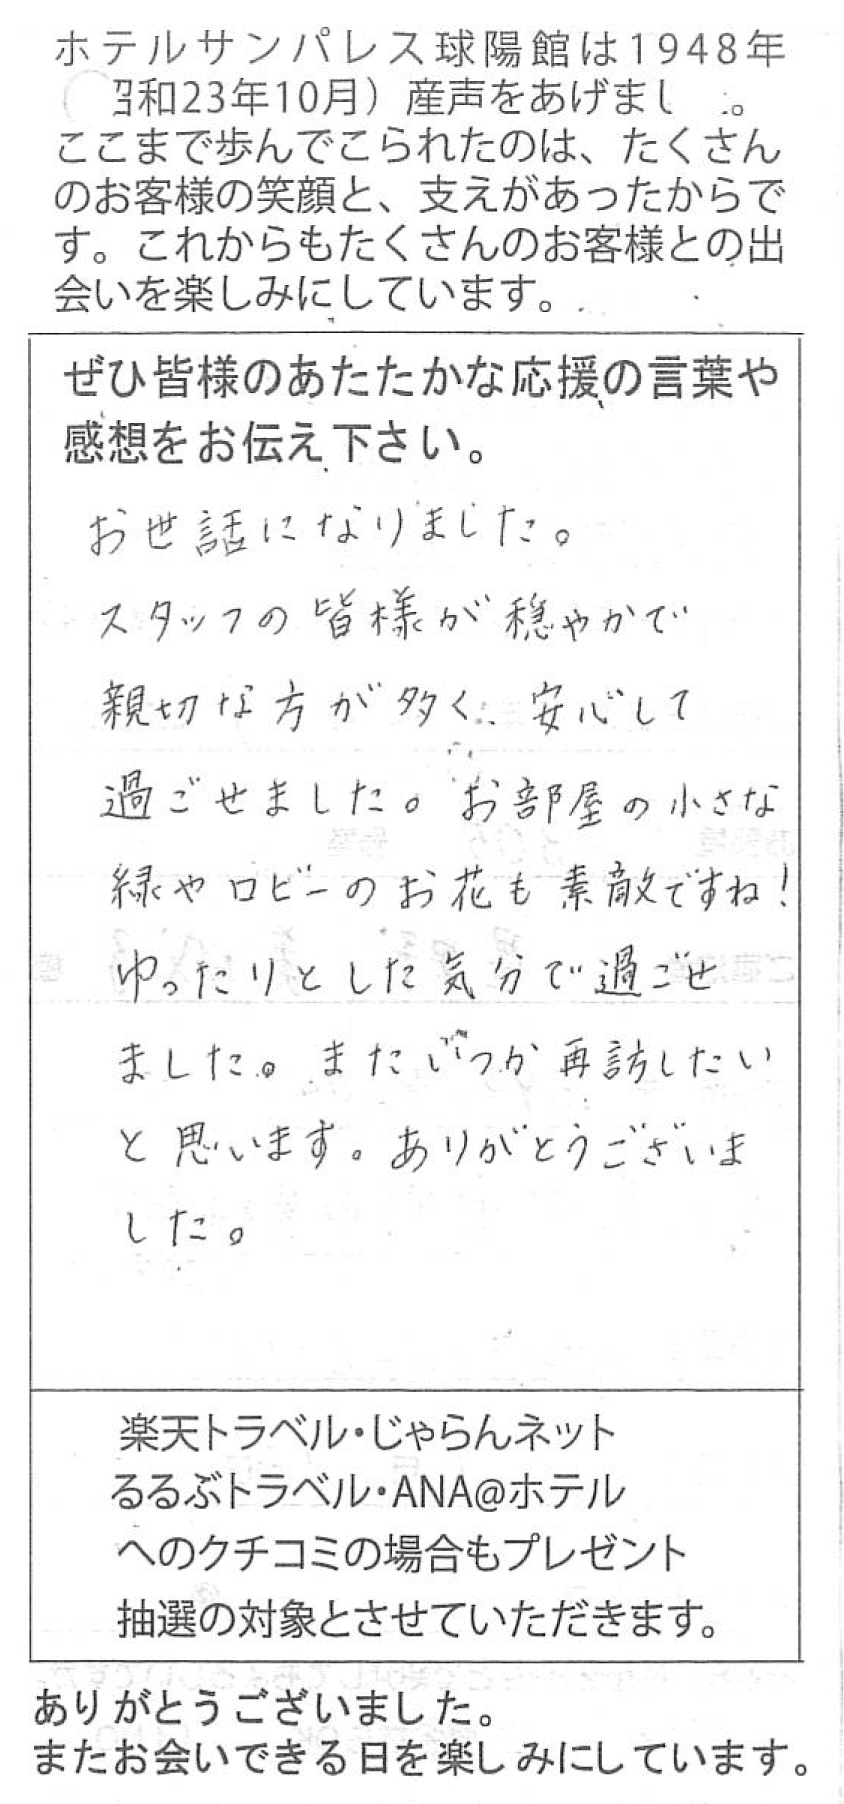 ホテルサンパレス球陽館は1948年
昭和23年10月）産声をあげまし 。
ここまで歩んでこられたのは、たくさん
のお客様の笑顔と、支えがあったからで
す。これからもたくさんのお客様との出
会いを楽しみにしています。
ぜひ皆様のあたたかな応援の言葉や
感想をお伝え下さい。
お世話になりました。
スタッフの皆様が穏やかで
親切な方が多く、安心して
過ごせました。お部屋の小さな
緑やロビーのお花も素敵ですね！
ゆったりとした気分で過ごせ
ました。またいつか再訪したい
と思います。ありがとうございま
した。
楽天トラベル・じゃらんネット
るるぶトラベル・ANA@ホテル
へのクチコミの場合もプレゼント
抽選の対象とさせていただきます。
ありがとうございました。
またお会いできる日を楽しみにしています。